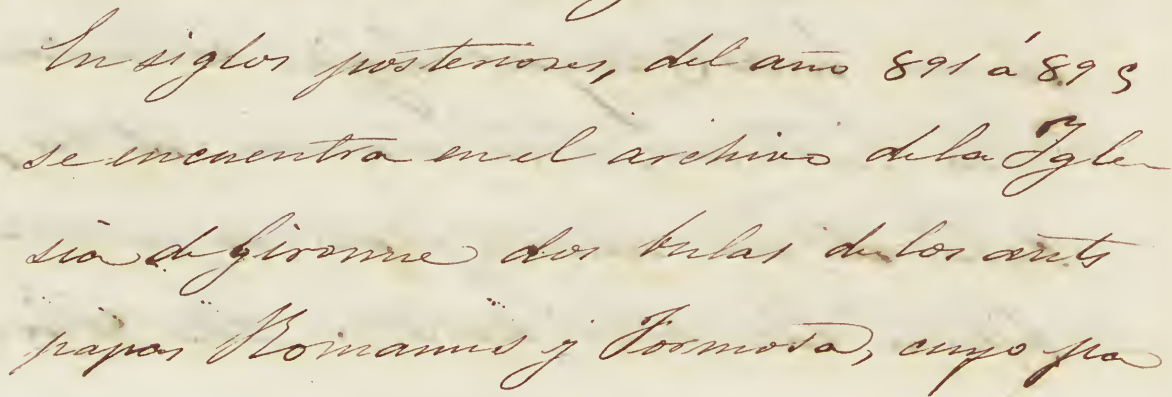 En siglos posteriores, del año 891 á 895
se encuentra en el archivo de la Igle
sia de Gironne dos bulas de los anti
papas Romanus y Formosa, cuyo pa